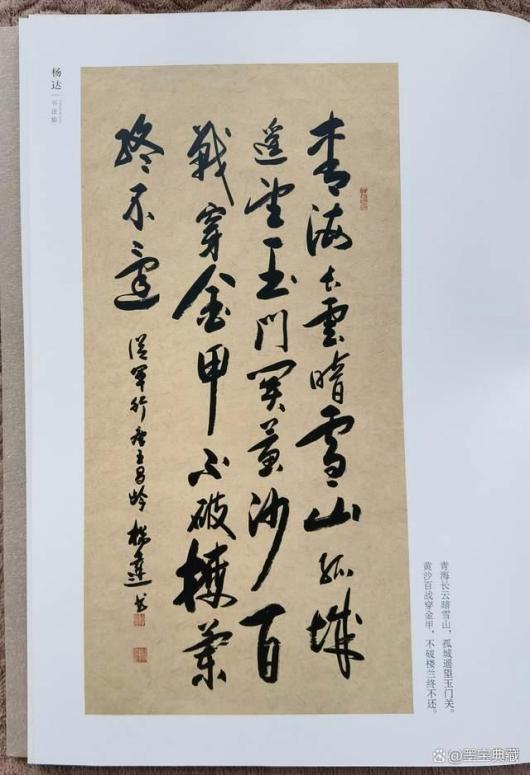 杨达 | 书法集
青海长雲暗雪山孤城
遥望玉門関黄沙百
戰穿金甲不破樓蘭
終不還 從軍行唐王昌龄 楊達书
青海长云暗雪山，孤城遥望玉门关。
黄沙百战穿金甲，不破楼兰终不还。
@墨宝典藏